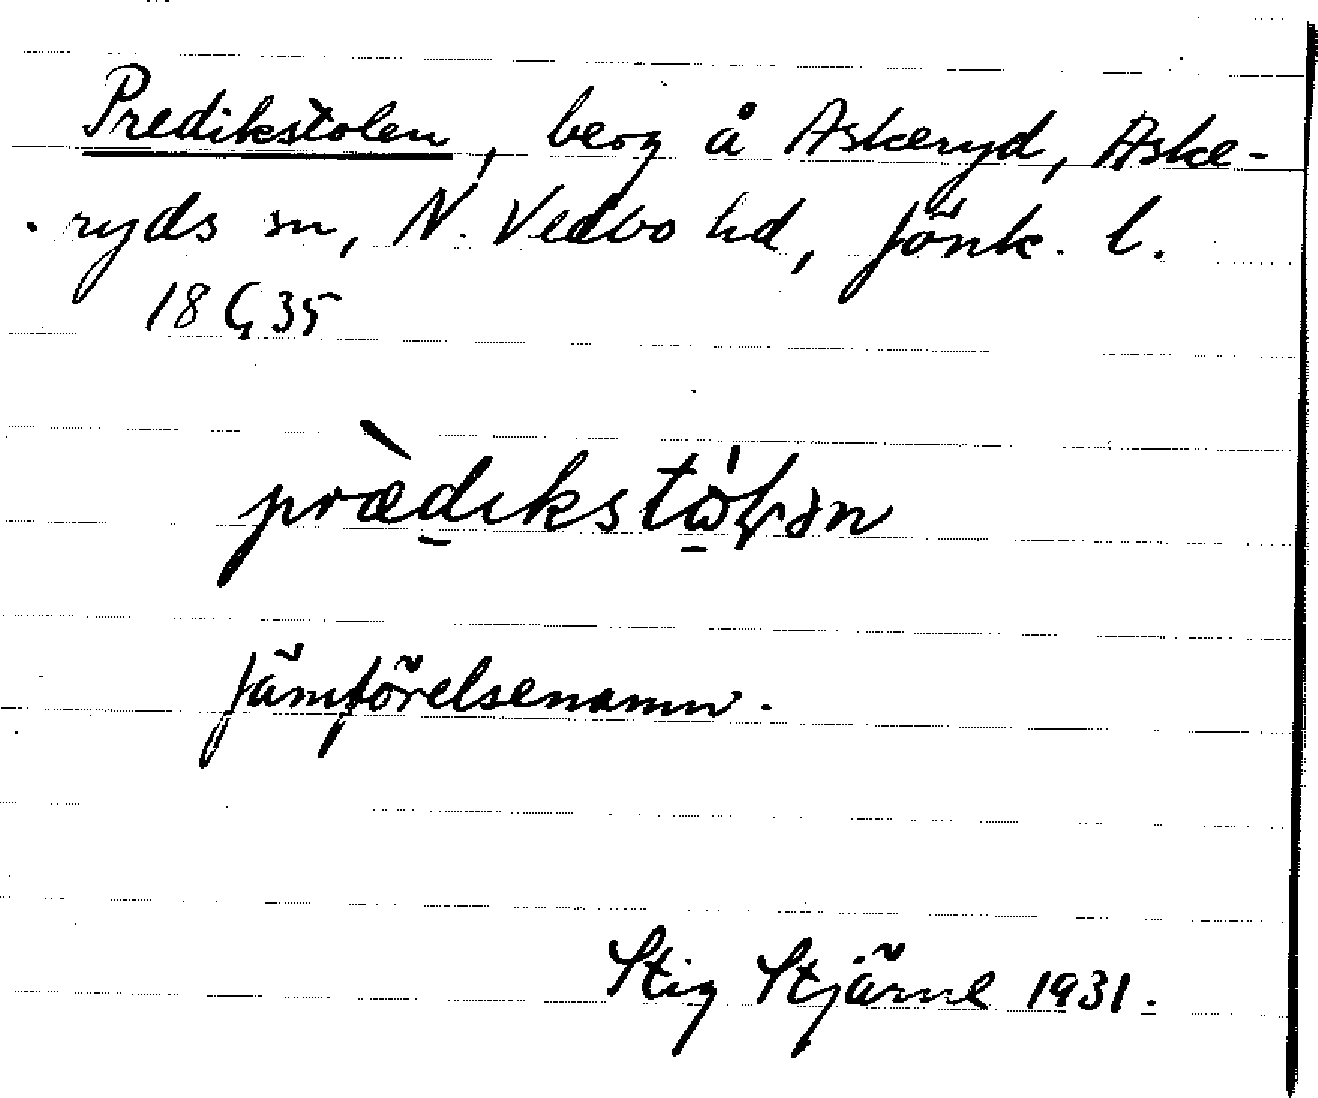 Predikstolen, berg å Askeryd, Aske-
ryds sn, N. Vedbo hd, Jönk. l.
18 G 35
prædikstⱷlən
Jämförelsenamn.
Stig Stjärne 1931.